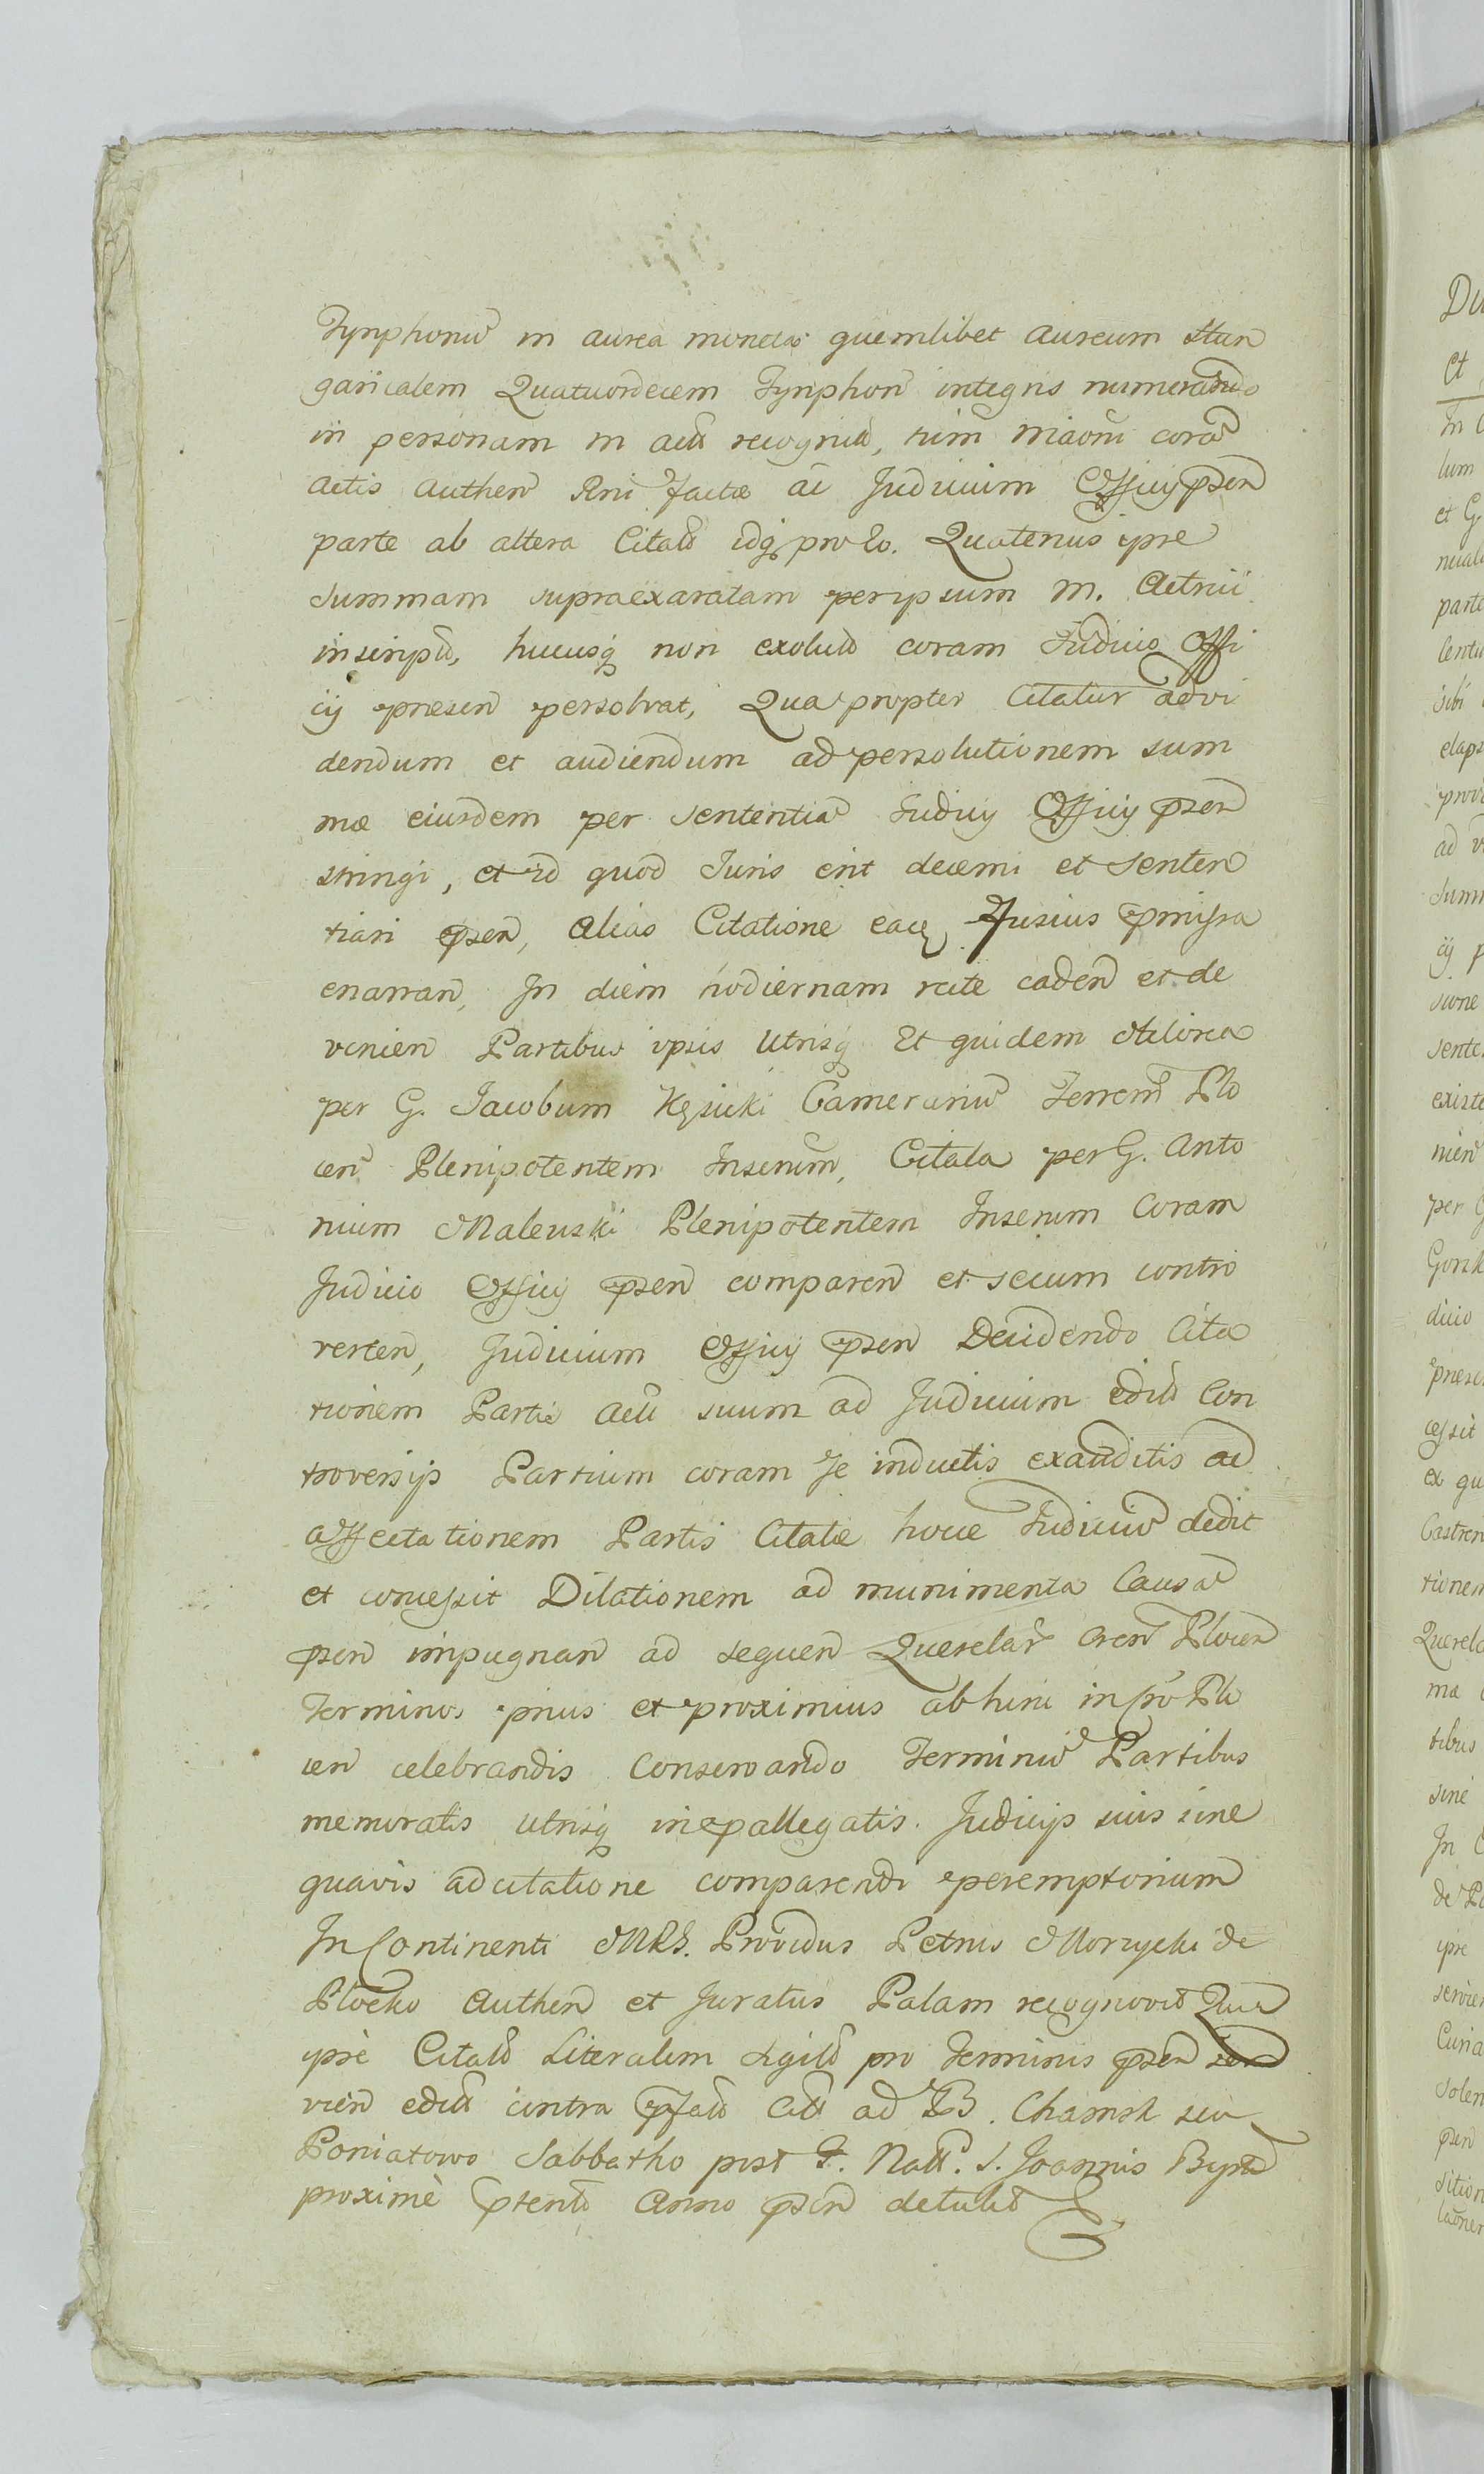 Tynphonu in aurea moneta quemlibet aureum Hun
garicalem Quatuordecem Tynphon integris numerando
in personam M actt recognit, tum
actis authen factae ac Judicium Officij psen
parte ab altera Citato idq pro Eo. Quatenus ipse
Summam supraexaratam per ipsum M.
inscript, hucusq non exolut coram Judicio Offi
cij presen persolvat, Qua propter Citatur ad vi
dendum et audiendum ad persolutionem sum
mae eiusdem per Sententia Judicij Officij psen
stringi, et id quod Juris erit decerni et Senten
tiari psen, alias Citatione eacq fusius pmissa
enarran, In diem hodiernam rite caden et de
venien Partibus ipsis Utrisq Et quidem Actorea
per G. Jacobum Kęsicki Camerariu Terrem Plo
cen Plenipotentem Inserum, Citata per G. Anto
nium Maleuski Plenipotentem Inserum Coram
Judicio Officij psen comparen et secum contro
verten, Judicium Officij psen Decidendo Cita
tionem Partis Actt suum ad Judicium edit Con
troversijs Partium coram Se inductis exauditis ad
affectationem Partis Citatae hocce Judiciu dedit
et concessit Dilationem ad munimenta Causa
psen impugnan ad sequen Querelar Cren Plocen
Terminos prius et proximius abhinc in fro Plo
cen celebrandis Conservando Terminu Partibus
memoratis Utrisq in pallegatis Judicijs suis sine
quavis adcitatione comparendi peremptorium
In Continenti MRS. Providus Petrus Morzycki de
Plocko Authen et Juratus Palam recognovit Quia
ipse Citato Literalem pro Terminis psen ser
vien editt contra pfato Citt ad B. Chamsk seu
Poniatowo Sabbatho post F. Natt. S. Joannis Bapta
proxime pterit Anno psen detulit
Du
et
In
lum
et G.
nuali
parte
lentu
sibi
elaps
ad v
Summ
cij p
sione
sente
existe
nien
per G
Gorsk
dicio
presen
cessit
ex qu
Castren
tionem
Querela
ma
tibus
sine
In C
de Po
ipse
servien
Curia
Solen
psen
sition